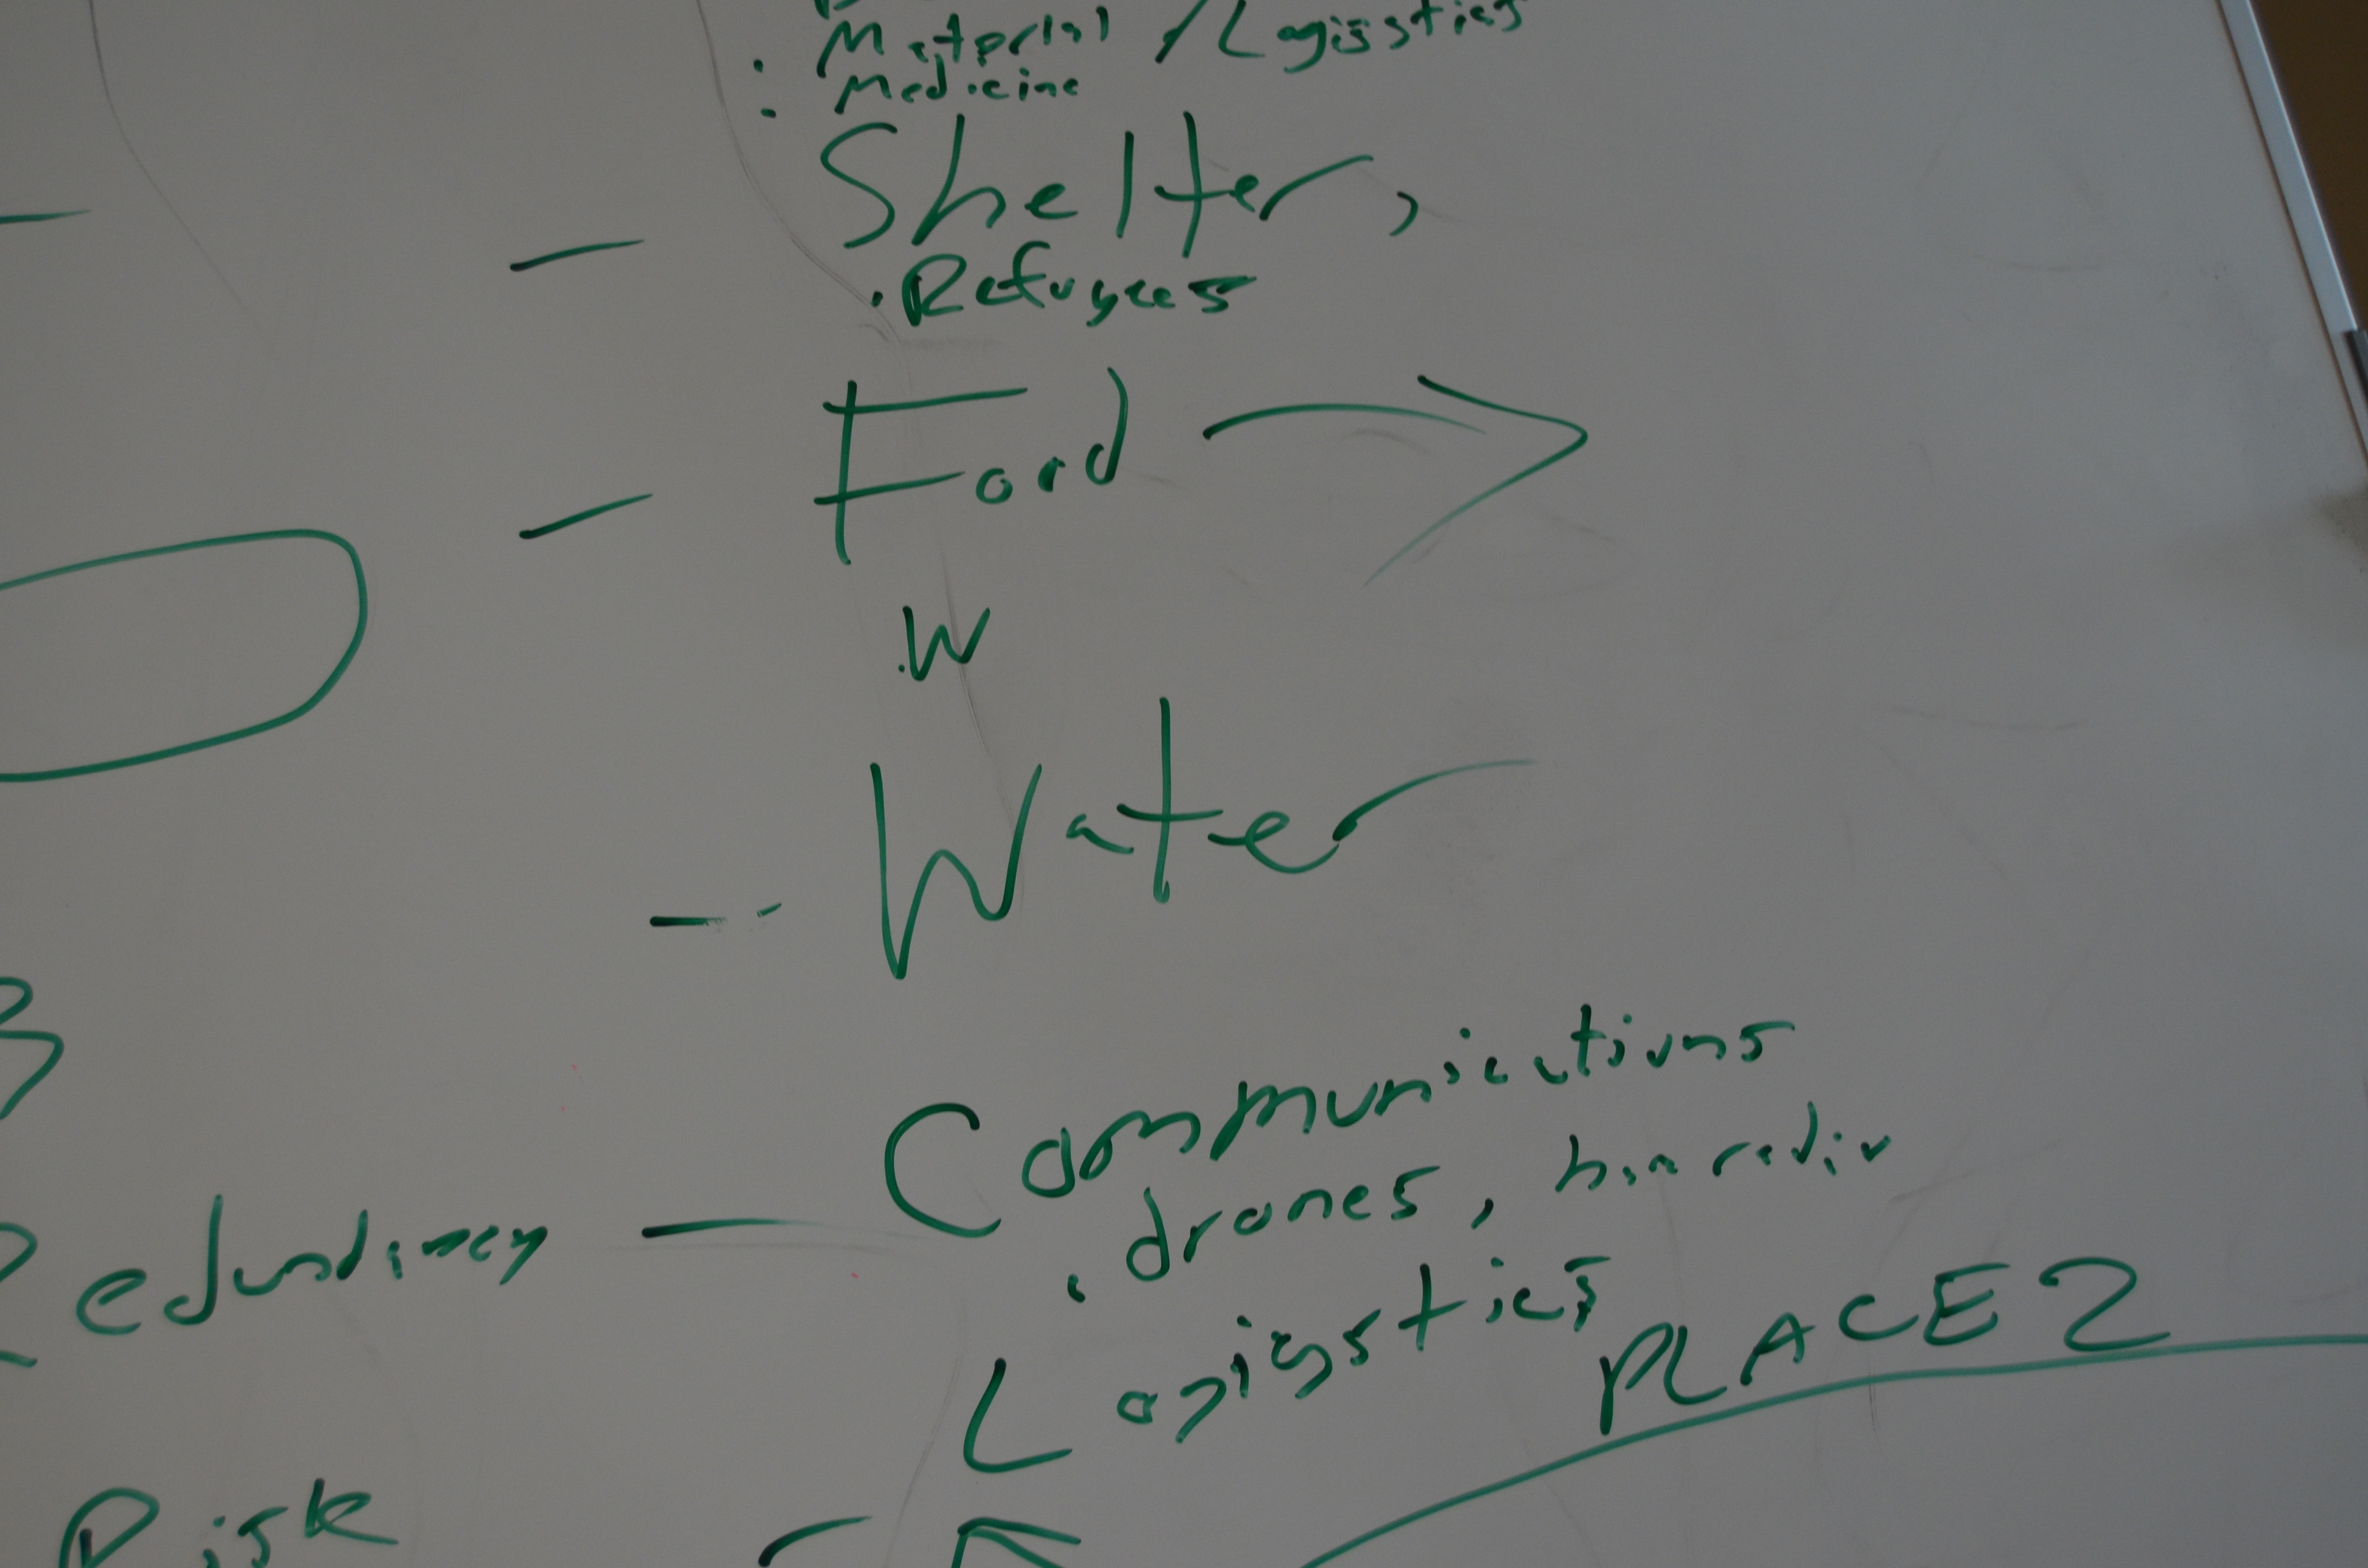 • Material / Logisstics
• Medicine
— Shelter,
• Refugees
— Food →
• W
-- Water
Communications
Redundincy —
• drones, ham radio
Logisstics
PLACE 2
Risk —